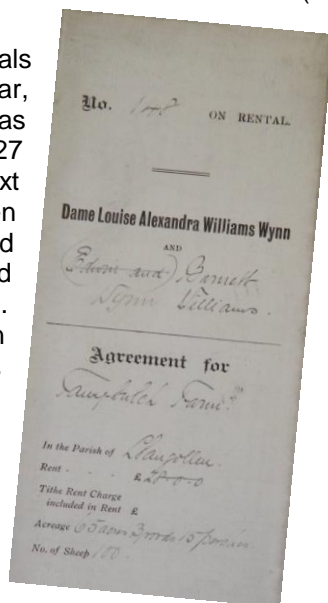 als
ar,
as
27
xt
on
d
d
.
n
No. 148 ON RENTAL.
Dame Louise Alexandra Williams Wynn
AND
(Edwin and) Barnett
Wynn Williams.
Agreement for
Farm
In the Parish of Llangollen.
Rent - £ 28-0-0
Tithe Rent Charge
included in Rent £
Acreage 65 acres 2 roods 15 perches
No. of Sheep 100.